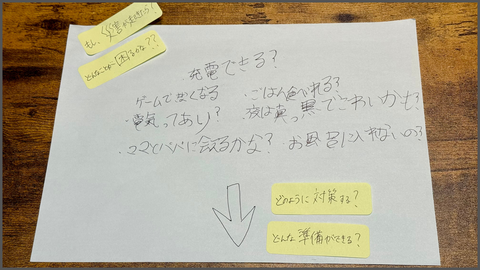 もし、災害が起きたら？
どんなことに困るかな??
・充電できる？
ゲームできなくなる
・ごはん食べれる？
・電気ってあり？
夜は真っ黒でこわいかも？
・ママとパパに会えるかな？
・お風呂に入れないの？
どのように対策する？
どんな準備ができる？